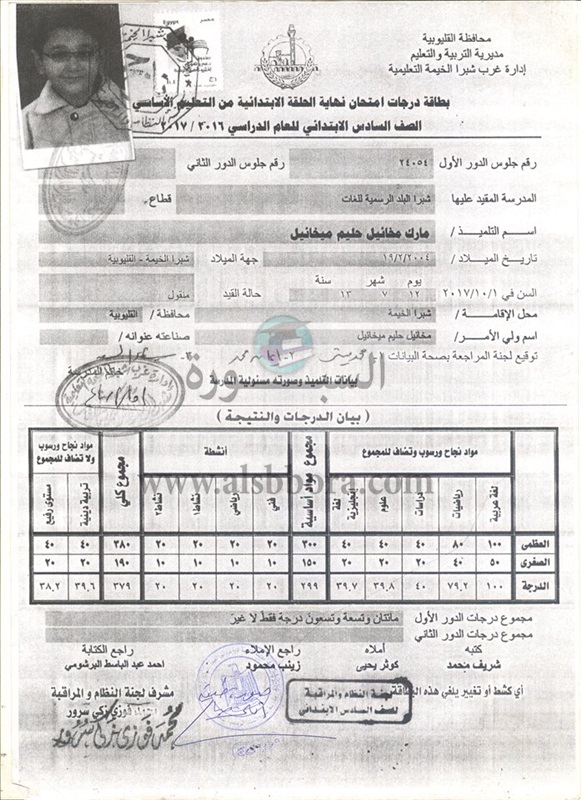 محافظة القليوبية
مديرية التربية والتعليم
إدارة غرب شبرا الخيمة التعليمية
بطاقة درجات امتحان نهاية الحلقة الابتدائية من التعليم الأساسي
الصف السادس الابتدائي للعام الدراسي ٢٠١٦ / ٢٠١٧
رقم جلوس الدور الأول ٢٤٠٥٤ رقم جلوس الدور الثاني
المدرسة المقيد عليها شبرا البلد الرسمية للغات قطاع
اسم التلميذ / مارك مخائيل حليم ميخائيل
تاريخ الميلاد / ١٩/٢/٢٠٠٤ جهة الميلاد شبرا الخيمة - القليوبية
يوم شهر سنة
السن في ٢٠١٧/١٠/١ ١٢ ٧ ١٣ حالة القيد منقول
محل الإقامة/ شبرا الخيمة محافظة / القليوبية
اسم ولي الأمر/ مخائيل حليم ميخائيل صناعته عنوانه /
توقيع لجنة المراجعة بصحة البيانات ١- ٢- ٣-
السبورة
بيانات التلميذ وصورته مسئولية المدرسة
( بيان الدرجات والنتيجة )
مواد نجاح ورسوب وتضاف للمجموع مجموع مواد أساسية أنشطة مجموع كلي مواد نجاح ورسوب ولا تضاف للمجموع
لغة عربية رياضيات دراسات علوم لغة إنجليزية فني رياضي نشاط١ نشاط٢ تربية دينية مستوى رفيع
www.alsbbora.com
العظمى ١٠٠ ٨٠ ٤٠ ٤٠ ٤٠ ٣٠٠ ٢٠ ٢٠ ٢٠ ٢٠ ٣٨٠ ٤٠ ٤٠
الصغرى ٥٠ ٤٠ ٢٠ ٢٠ ٢٠ ١٥٠ ١٠ ١٠ ١٠ ١٠ ١٩٠ ٢٠ ٢٠
الدرجة ١٠٠ ٧٩,٢ ٤٠ ٣٩,٨ ٣٩,٧ ٢٩٩ ٢٠ ٢٠ ٢٠ ٢٠ ٣٧٩ ٣٩,٦ ٣٨,٢
مجموع درجات الدور الأول مائتان وتسعة وتسعون درجة فقط لا غير
مجموع درجات الدور الثاني
كتبه أملاه راجع الإملاء راجع الكتابة
شريف محمد كوثر يحيى زينب محمود احمد عبد الباسط البرشومي
أي كشط أو تغيير يلغي هذه البطاقة
لجنة النظام والمراقبة
للصف السادس الابتدائي
مشرف لجنة النظام والمراقبة
فوزي زكي سرور
محمد فوزي زكي سرور